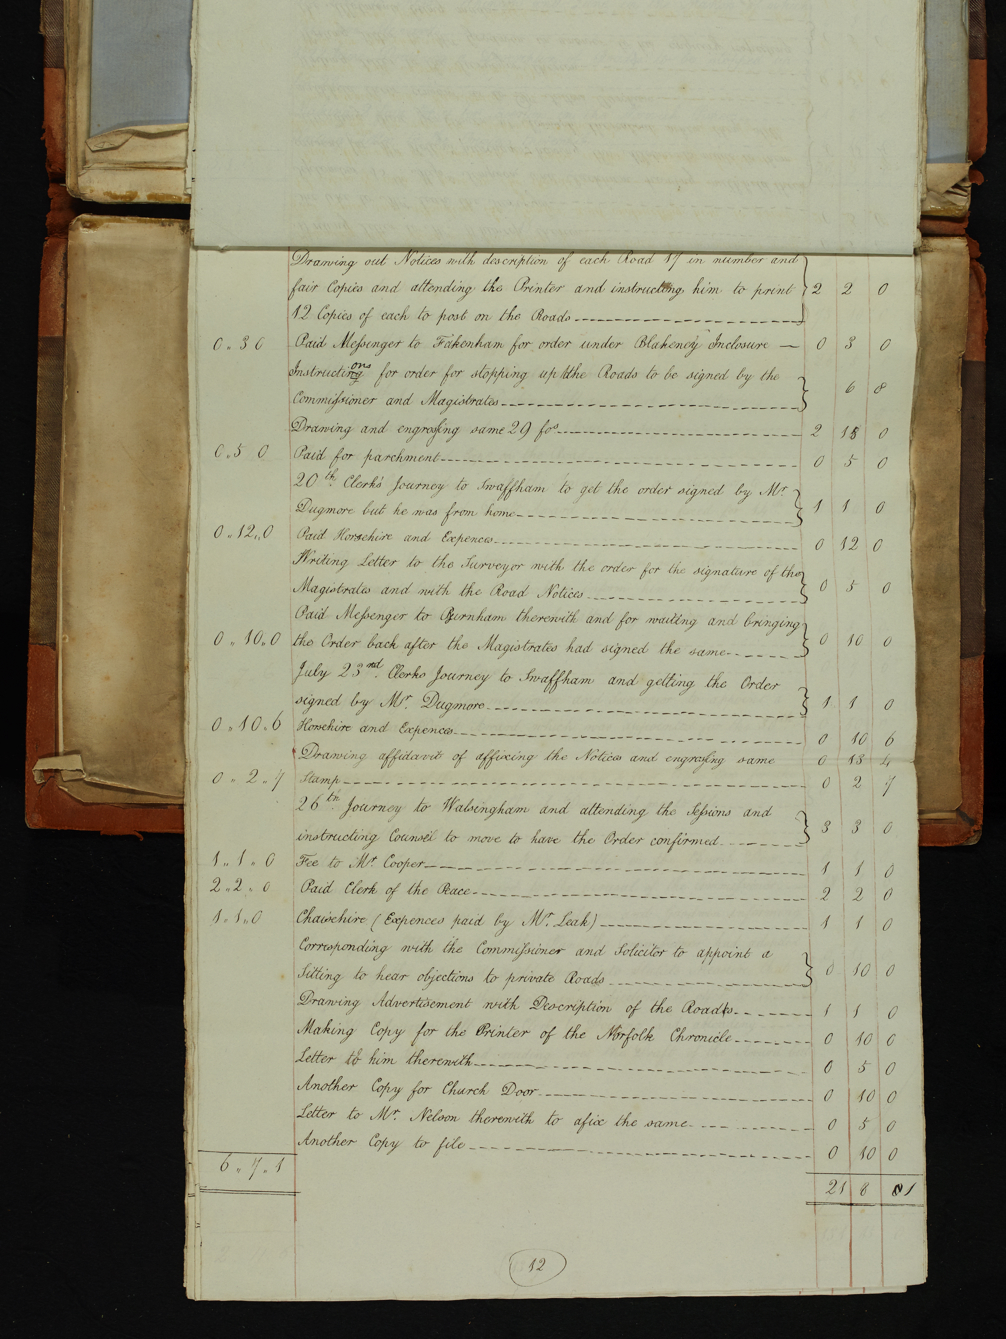 Drawing out Notices with description of each Road 17 in number and
fair Copies and attending the Printer and instructing him to print 2 2 0
12 Copies of each to post on the Roads
0..3 0 Paid Messenger to Fakenham for order under Blakeney Inclosure — 0 3 0
Instructions for order for stopping up the Roads to be signed by the
Commissioner and Magistrates 6 8
Drawing and engrossing same 29 fos. 2 15 0
0..5 0 Paid for parchment 0 5 0
20th. Clerk's Journey to Swaffham to get the order signed by Mr.
Dugmore but he was from home 1 1 0
0..12..0 Paid Horsehire and Expences 0 12 0
Writing Letter to the Surveyor with the order for the signature of the
Magistrates and with the Road Notices 0 5 0
Paid Messenger to Burnham therewith and for waiting and bringing
0..10..0 the Order back after the Magistrates had signed the same 0 10 0
July 23rd. Clerks Journey to Swaffham and getting the Order
signed by Mr. Dugmore 1 1 0
0..10..6 Horsehire and Expences 0 10 6
Drawing affidavit of affixing the Notices and engrossing same 0 13 4
0..2..7 Stamp 0 2 7
26th Journey to Walsingham and attending the Sessions and
instructing Counsel to move to have the Order confirmed 3 3 0
1..1..0 Fee to Mr. Cooper 1 1 0
2..2..0 Paid Clerk of the Peace 2 2 0
1..1..0 Chaisehire (Expences paid by Mr. Leak) 1 1 0
Corresponding with the Commissioner and Solicitor to appoint a
Sitting to hear objections to private Roads 0 10 0
Drawing Advertisement with Description of the Roads 1 1 0
Making Copy for the Printer of the Norfolk Chronicle 0 10 0
Letter to him therewith 0 5 0
Another Copy for Church Door 0 10 0
Letter to Mr. Nelson therewith to afix the same 0 5 0
Another Copy to file 0 10 0
6..7..1
21 8 1
12